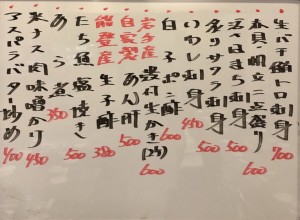 生バチ鮪トロ刺身 700
赤貝・帆立二点盛り 600
活〆はまち刺身 500
炙りサワラ刺身 500
いわし刺身 450
白子ポン酢 600
岩手産 殻付生かき(2ケ) 600
自家製 あん肝 500
能登産 生子酢 380
たち魚塩焼き 500
あら煮 350
米ナス肉味噌かけ 450
アスパラバター炒め 400